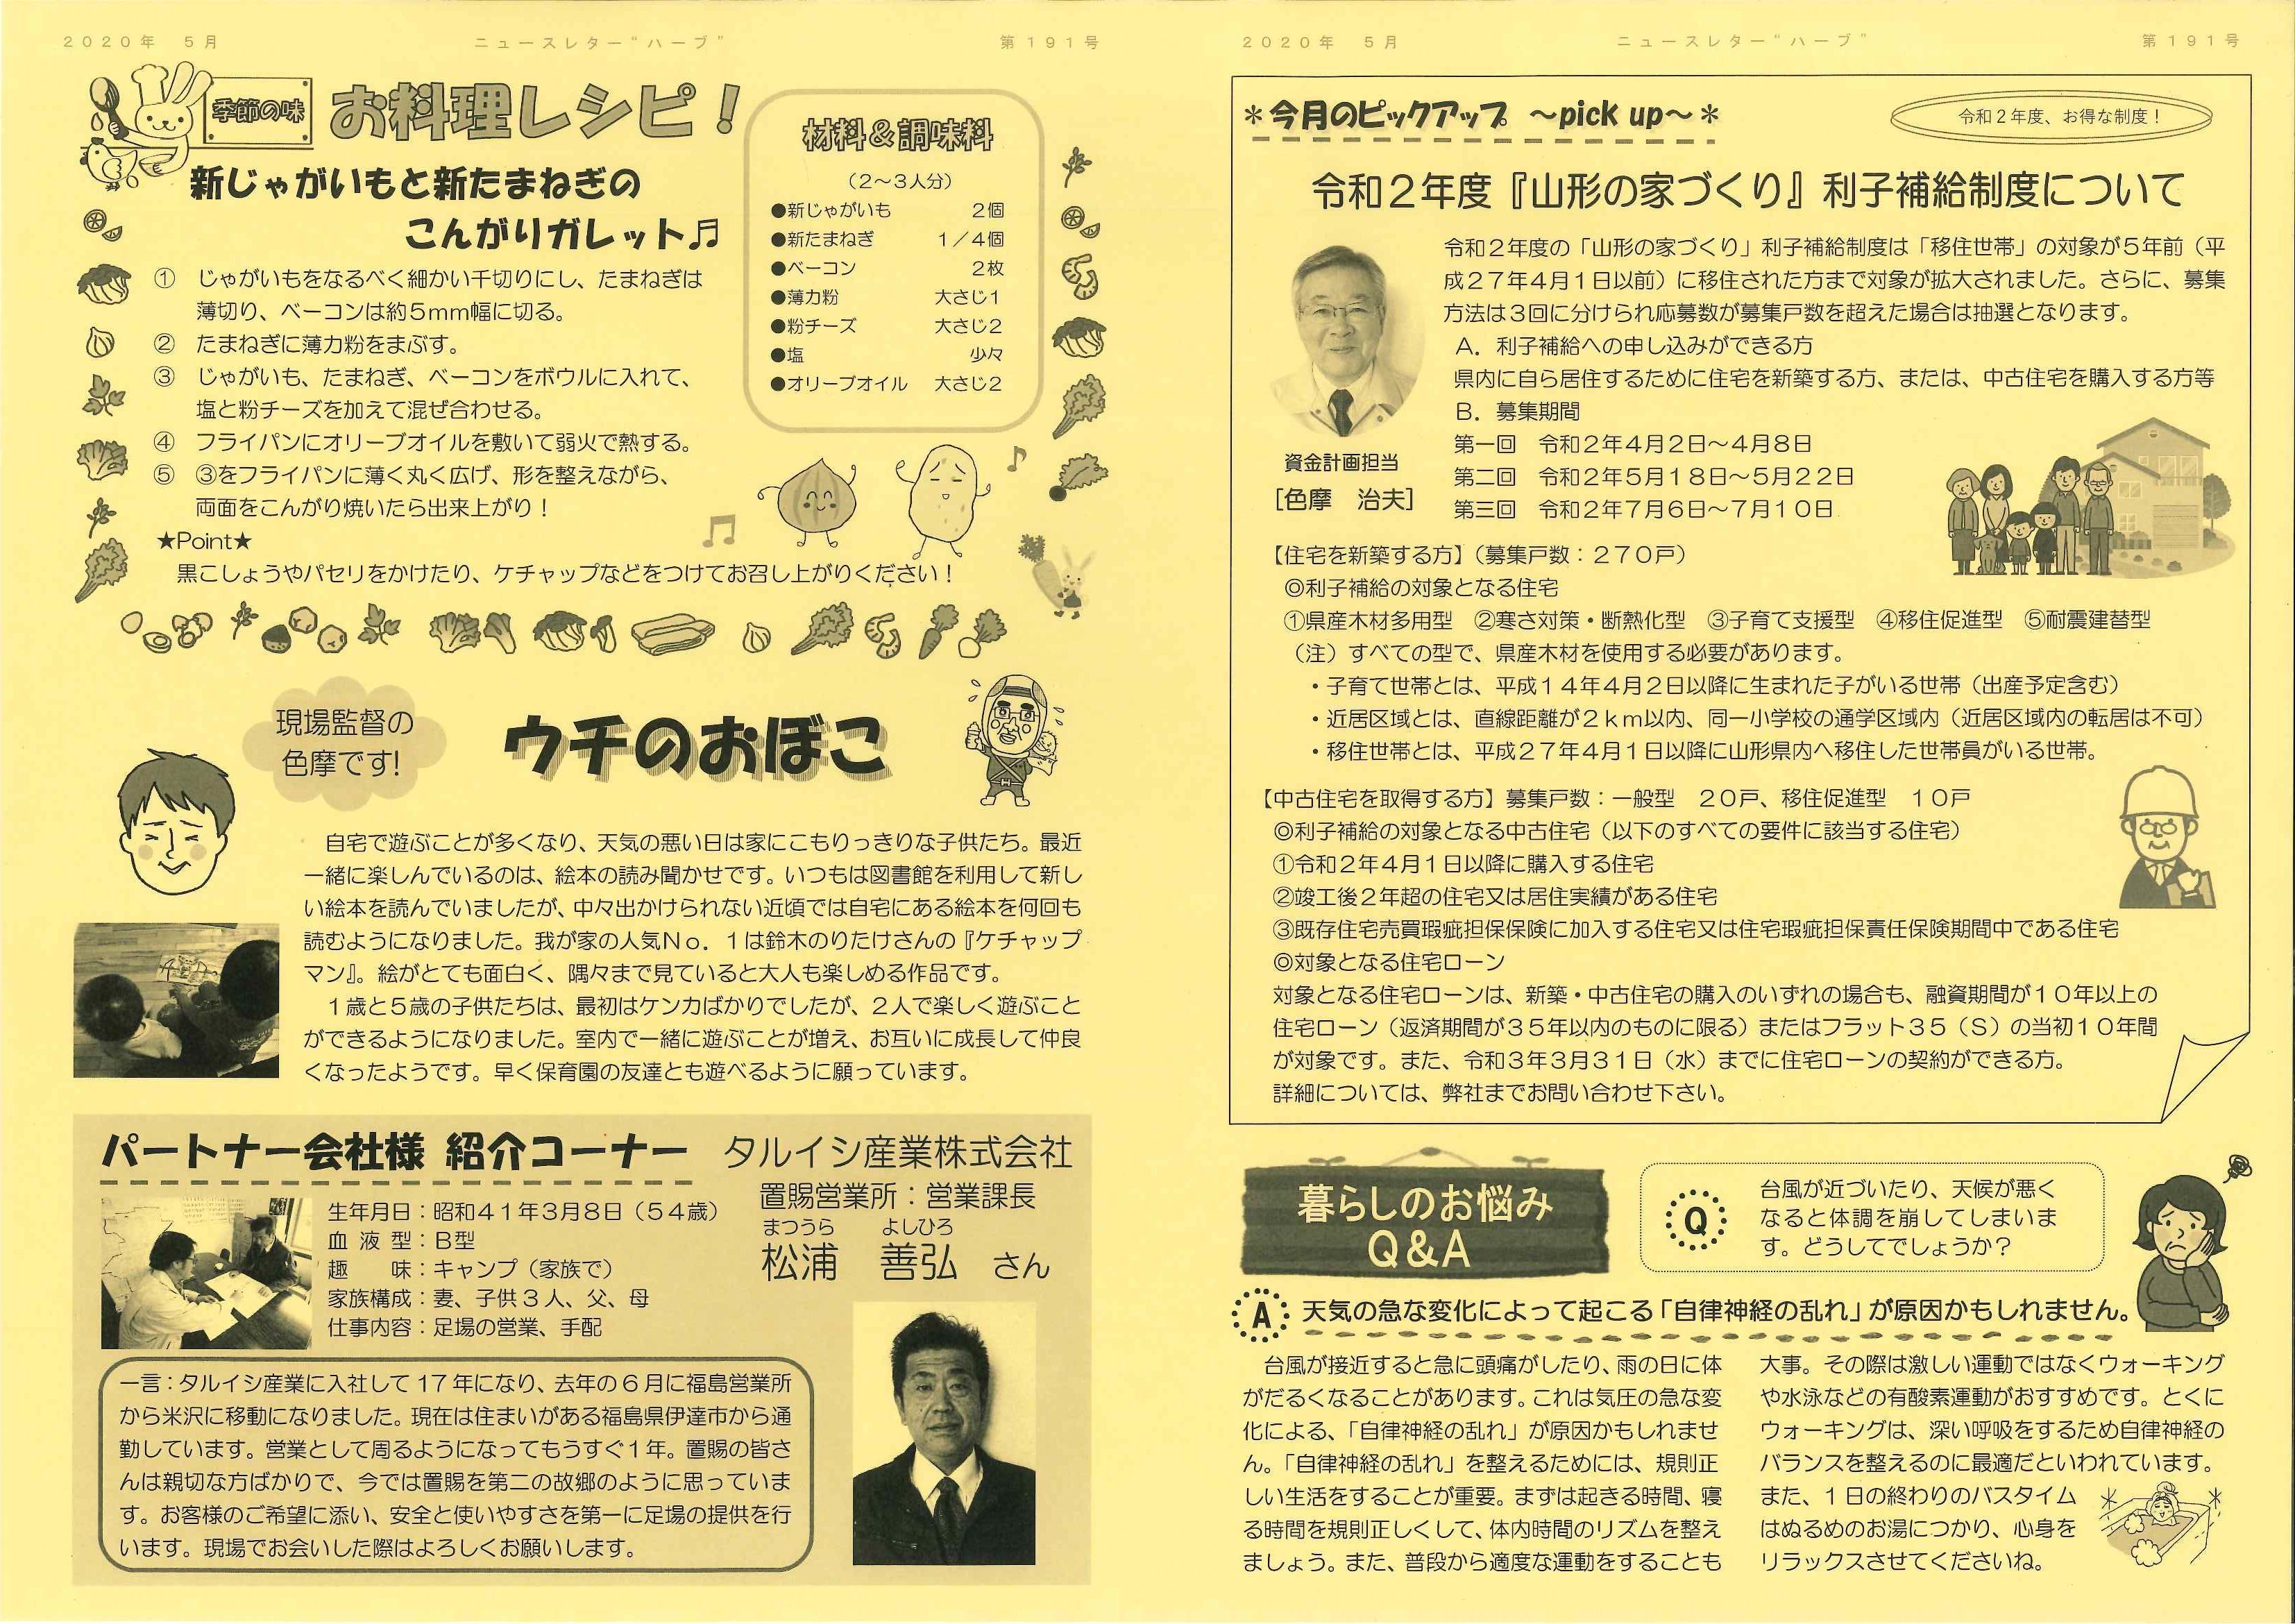 2020年　5月
ニュースレター“ハーブ”
第191号
季節の味
お料理レシピ！
新じゃがいもと新たまねぎの
こんがりガレット♬
①　じゃがいもをなるべく細かい千切りにし、たまねぎは
薄切り、ベーコンは約5mm幅に切る。
②　たまねぎに薄力粉をまぶす。
③　じゃがいも、たまねぎ、ベーコンをボウルに入れて、
塩と粉チーズを加えて混ぜ合わせる。
④　フライパンにオリーブオイルを敷いて弱火で熱する。
⑤　③をフライパンに薄く丸く広げ、形を整えながら、
両面をこんがり焼いたら出来上がり！
★Point★
黒こしょうやパセリをかけたり、ケチャップなどをつけてお召し上がりください！
材料＆調味料
（2～3人分）
●新じゃがいも　2個
●新たまねぎ　1／4個
●ベーコン　2枚
●薄力粉　大さじ1
●粉チーズ　大さじ2
●塩　少々
●オリーブオイル　大さじ2
現場監督の
色摩です！
ウチのおぼこ
自宅で遊ぶことが多くなり、天気の悪い日は家にこもりっきりな子供たち。最近
一緒に楽しんでいるのは、絵本の読み聞かせです。いつもは図書館を利用して新し
い絵本を読んでいましたが、中々出かけられない近頃では自宅にある絵本を何回も
読むようになりました。我が家の人気No．1は鈴木のりたけさんの『ケチャップ
マン』。絵がとても面白く、隅々まで見ていると大人も楽しめる作品です。
1歳と5歳の子供たちは、最初はケンカばかりでしたが、2人で楽しく遊ぶこと
ができるようになりました。室内で一緒に遊ぶことが増え、お互いに成長して仲良
くなったようです。早く保育園の友達とも遊べるように願っています。
パートナー会社様 紹介コーナー
タルイシ産業株式会社
置賜営業所：営業課長
まつうら　よしひろ
松浦　善弘　さん
生年月日：昭和41年3月8日（54歳）
血 液 型：B型
趣　　味：キャンプ（家族で）
家族構成：妻、子供3人、父、母
仕事内容：足場の営業、手配
一言：タルイシ産業に入社して17年になり、去年の6月に福島営業所
から米沢に移動になりました。現在は住まいがある福島県伊達市から通
勤しています。営業として周るようになってもうすぐ1年。置賜の皆さ
んは親切な方ばかりで、今では置賜を第二の故郷のように思っていま
す。お客様のご希望に添い、安全と使いやすさを第一に足場の提供を行
います。現場でお会いした際はよろしくお願いします。
2020年　5月
ニュースレター“ハーブ”
第191号
＊今月のピックアップ　～pick up～＊
令和2年度、お得な制度！
令和2年度『山形の家づくり』利子補給制度について
令和2年度の「山形の家づくり」利子補給制度は「移住世帯」の対象が5年前（平
成27年4月1日以前）に移住された方まで対象が拡大されました。さらに、募集
方法は3回に分けられ応募数が募集戸数を超えた場合は抽選となります。
A．利子補給への申し込みができる方
県内に自ら居住するために住宅を新築する方、または、中古住宅を購入する方等
B．募集期間
第一回　令和2年4月2日～4月8日
第二回　令和2年5月18日～5月22日
第三回　令和2年7月6日～7月10日
資金計画担当
［色摩　治夫］
【住宅を新築する方】（募集戸数：270戸）
◎利子補給の対象となる住宅
①県産木材多用型　②寒さ対策・断熱化型　③子育て支援型　④移住促進型　⑤耐震建替型
（注）すべての型で、県産木材を使用する必要があります。
・子育て世帯とは、平成14年4月2日以降に生まれた子がいる世帯（出産予定含む）
・近居区域とは、直線距離が2km以内、同一小学校の通学区域内（近居区域内の転居は不可）
・移住世帯とは、平成27年4月1日以降に山形県内へ移住した世帯員がいる世帯。
【中古住宅を取得する方】募集戸数：一般型　20戸、移住促進型　10戸
◎利子補給の対象となる中古住宅（以下のすべての要件に該当する住宅）
①令和2年4月1日以降に購入する住宅
②竣工後2年超の住宅又は居住実績がある住宅
③既存住宅売買瑕疵担保保険に加入する住宅又は住宅瑕疵担保責任保険期間中である住宅
◎対象となる住宅ローン
対象となる住宅ローンは、新築・中古住宅の購入のいずれの場合も、融資期間が10年以上の
住宅ローン（返済期間が35年以内のものに限る）またはフラット35（S）の当初10年間
が対象です。また、令和3年3月31日（水）までに住宅ローンの契約ができる方。
詳細については、弊社までお問い合わせ下さい。
暮らしのお悩み
Q&A
Q
台風が近づいたり、天候が悪く
なると体調を崩してしまいま
す。どうしてでしょうか？
A　天気の急な変化によって起こる「自律神経の乱れ」が原因かもしれません。
台風が接近すると急に頭痛がしたり、雨の日に体
がだるくなることがあります。これは気圧の急な変
化による、「自律神経の乱れ」が原因かもしれませ
ん。「自律神経の乱れ」を整えるためには、規則正
しい生活をすることが重要。まずは起きる時間、寝
る時間を規則正しくして、体内時間のリズムを整え
ましょう。また、普段から適度な運動をすることも
大事。その際は激しい運動ではなくウォーキング
や水泳などの有酸素運動がおすすめです。とくに
ウォーキングは、深い呼吸をするため自律神経の
バランスを整えるのに最適だといわれています。
また、1日の終わりのバスタイム
はぬるめのお湯につかり、心身を
リラックスさせてくださいね。